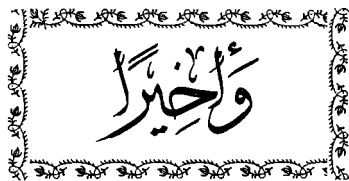 وَأَخِيرًا